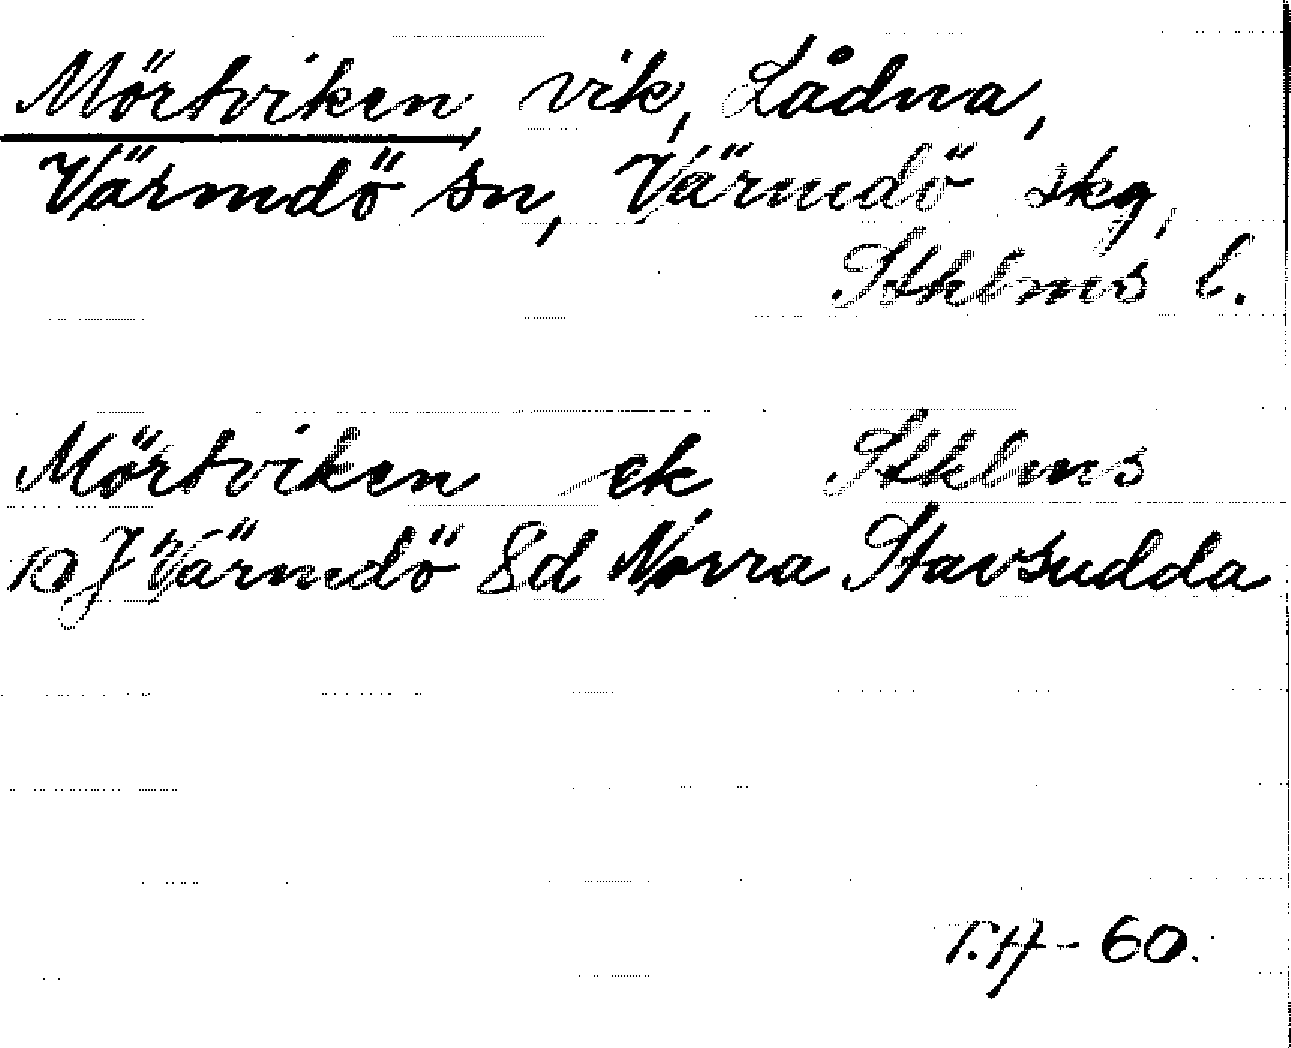 Mörtviken, vik, Lådna,
Värmdö sn, Värmdö skg,
Sthlms l.
Mörtviken ek Sthlms
10 J Värmdö 8d Norra Stavsudda
T.H - 60.